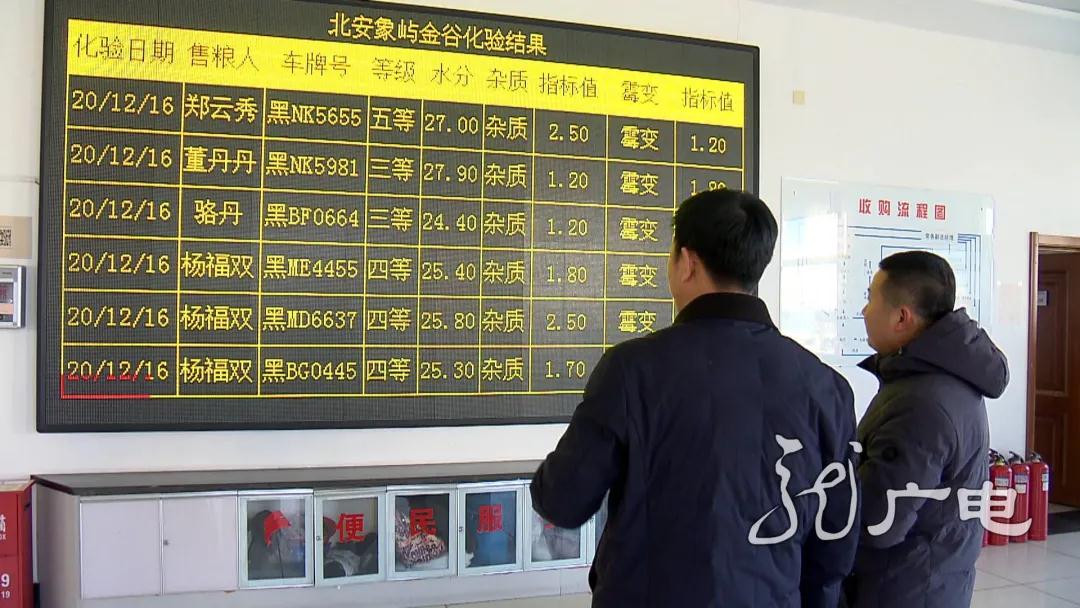 北安象屿金谷化验结果
化验日期 售粮人 车牌号 等级 水分 杂质 指标值 霉变 指标值
20/12/16 郑云秀 黑NK5655 五等 27.00 杂质 2.50 霉变 1.20
20/12/16 董丹丹 黑NK5981 三等 27.90 杂质 1.20 霉变
20/12/16 骆丹 黑BF0664 三等 24.40 杂质 1.20 霉变
20/12/16 杨福双 黑ME4455 四等 25.40 杂质 1.80 霉变
20/12/16 杨福双 黑MD6637 四等 25.80 杂质 2.50 霉变
20/12/16 杨福双 黑BG0445 四等 25.30 杂质 1.70
收购流程图
便民服
龙广电